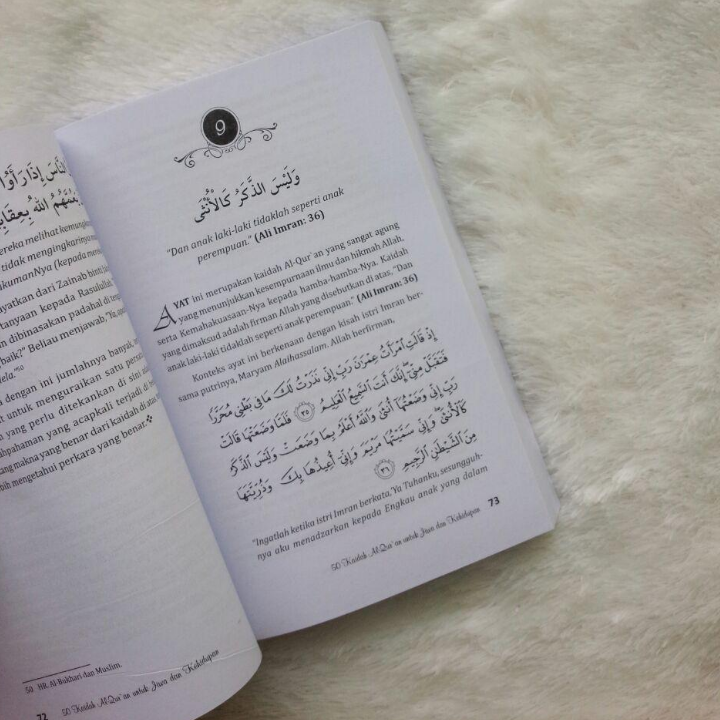 نَّاسَ إِذَا رَأَوْا
اللهُ بِعِقَابٍ
ereka melihat kemungk
tidak mengingkarinya
kumanNya (kepada mere
yatkan dari Zainab binti
tanyaan kepada Rasulullah
n dibinasakan padahal di ten
baik?" Beliau menjawab, "Ya, apa
ela."50
dengan ini jumlahnya banyak,
t untuk menguraikan satu persa
yang perlu ditekankan di sini
ahpahaman yang acapkali terjadi di
ng makna yang benar dari kaidah di atas,
bih mengetahui perkara yang benar.
50 HR. Al-Bukhari dan Muslim.
72 50 Kaidah Al-Qur`an untuk Jiwa dan Kehidupan
9
وَلَيْسَ الذَّكَرُ كَالْأُنْثَى
"Dan anak laki-laki tidaklah seperti anak
perempuan." (Ali Imran: 36)
AYAT ini merupakan kaidah Al-Qur`an yang sangat agung
yang menunjukkan kesempurnaan ilmu dan hikmah Allah,
serta Kemahakuasaan-Nya kepada hamba-hamba-Nya. Kaidah
yang dimaksud adalah firman Allah yang disebutkan di atas, "Dan
anak laki-laki tidaklah seperti anak perempuan." (Ali Imran: 36)
Konteks ayat ini berkenaan dengan kisah istri Imran ber-
sama putrinya, Maryam Alaihassalam. Allah berfirman,
إِذْ قَالَتِ امْرَأَتُ عِمْرَٰنَ رَبِّ إِنِّي نَذَرْتُ لَكَ مَا فِي بَطْنِي مُحَرَّرًا
فَتَقَبَّلْ مِنِّي ۖ إِنَّكَ أَنْتَ السَّمِيعُ الْعَلِيمُ ٣٥ فَلَمَّا وَضَعَتْهَا قَالَتْ
رَبِّ إِنِّي وَضَعْتُهَا أُنْثَىٰ وَاللَّهُ أَعْلَمُ بِمَا وَضَعَتْ وَلَيْسَ الذَّكَرُ
كَالْأُنْثَىٰ ۖ وَإِنِّي سَمَّيْتُهَا مَرْيَمَ وَإِنِّي أُعِيذُهَا بِكَ وَذُرِّيَّتَهَا
مِنَ الشَّيْطَٰنِ الرَّجِيمِ ٣٦
"Ingatlah ketika istri Imran berkata, Ya Tuhanku, sesungguh-
nya aku menadzarkan kepada Engkau anak yang dalam
50 Kaidah Al-Qur`an untuk Jiwa dan Kehidupan 73